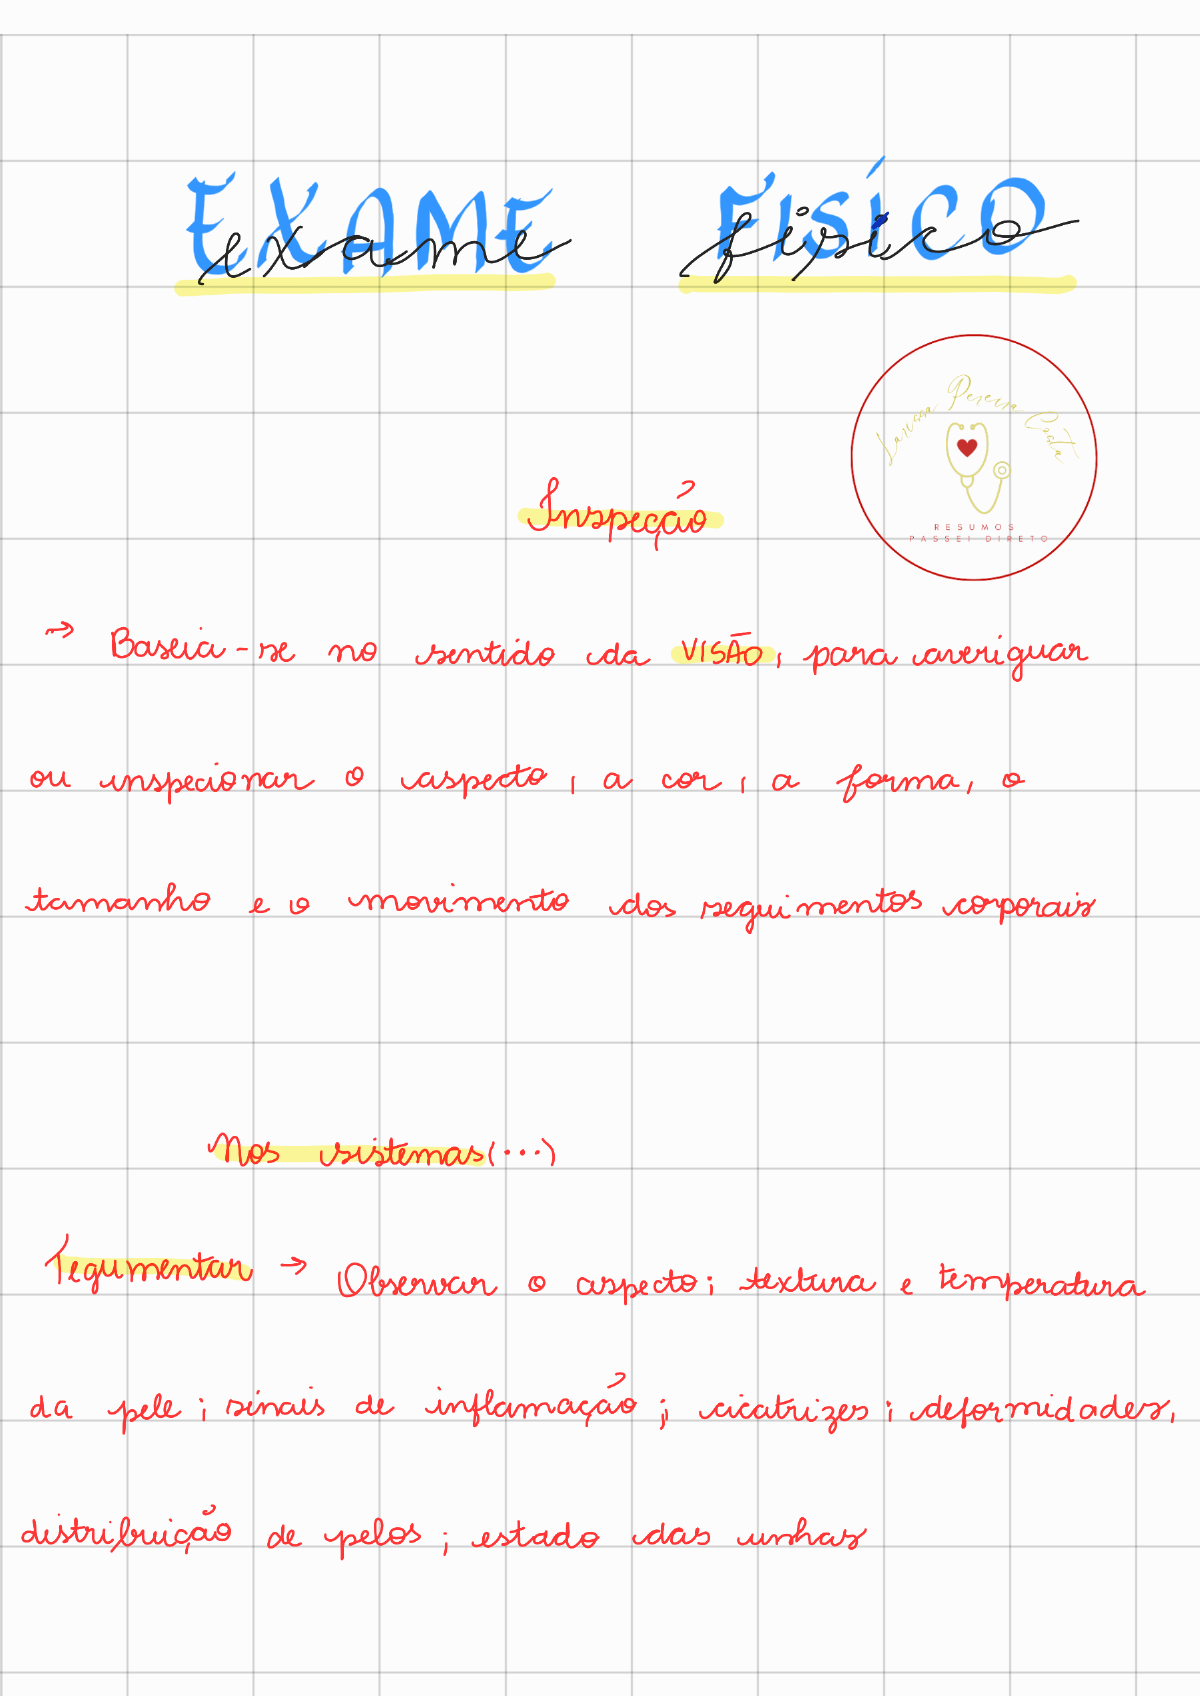 EXAME FÍSICO
exame físico
Larissa Pereira Costa
RESUMOS
PASSEI DIRETO
Inspeção
→ Baseia-se no sentido da VISÃO, para averiguar
ou inspecionar o aspecto, a cor, a forma, o
tamanho e o movimento dos seguimentos corporais
Nos sistemas (...)
Tegumentar → Observar o aspecto; textura e temperatura
da pele; sinais de inflamação; cicatrizes; deformidades,
distribuição de pelos; estado das unhas